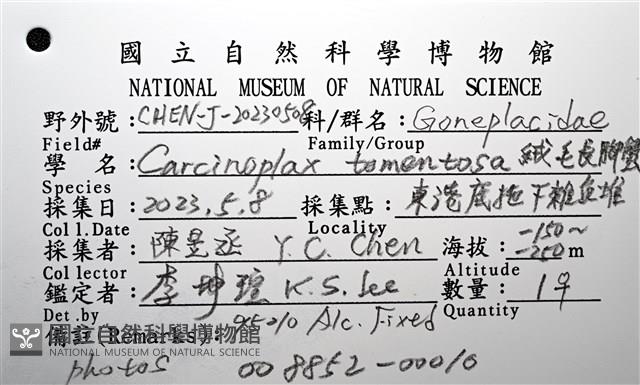 國立自然科學博物館
NATIONAL MUSEUM OF NATURAL SCIENCE
野外號:CHEN-J-20230508 科/群名:Goneplacidae
Field# Family/Group
學 名:Carcinoplax tomentosa 絨毛長腳蟹
Species
採集日:2023.5.8 採集點:東港底拖下雜魚堆
Coll.Date Locality
採集者:陳昱丞 Y.C. Chen 海拔:-150~-250m
Collector Altitude
鑑定者:李坤瑄 K.S. Lee 數量:1♀
Det.by Quantity
備註(Remarks): 95% Alc. Fixed
國立自然科學博物館
NATIONAL MUSEUM OF NATURAL SCIENCE
photos 008852-00010